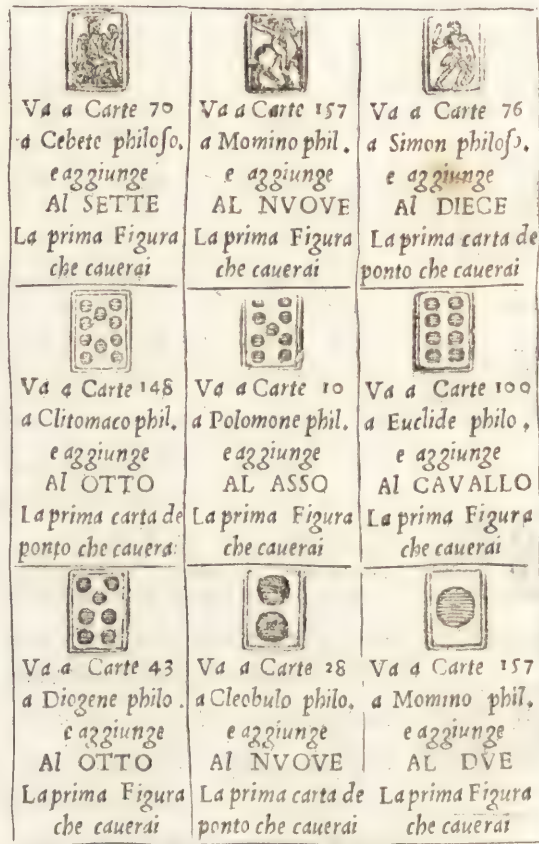 Va a Carte 70
a Cebete philoſo.
e aggiunge
Al SETTE
La prima Figura
che cauerai
Va a Carte 157
a Momino phil.
e aggiunge
AL NVOVE
La prima Figura
che cauerai
Va a Carte 76
a Simon philoſo.
e aggiunge
Al DIECE
La prima carta de
ponto che cauerai
Va a Carte 148
a Clitomaco phil.
e aggiunge
Al OTTO
La prima carta de
ponto che cauera
Va a Carte 10
a Polomone phil.
e aggiunge
AL ASSO
La prima Figura
che cauerai
Va a Carte 100
a Euclide philo.
e aggiunge
Al CAVALLO
La prima Figura
che cauerai
Va a Carte 43
a Diogene philo.
e aggiunge
Al OTTO
La prima Figura
che cauerai
Va a Carte 28
a Cleobulo philo.
e aggiunge
Al NVOVE
La prima carta de
ponto che cauerai
Va a Carte 157
a Momino phil.
e aggiunge
AL DVE
La prima Figura
che cauerai